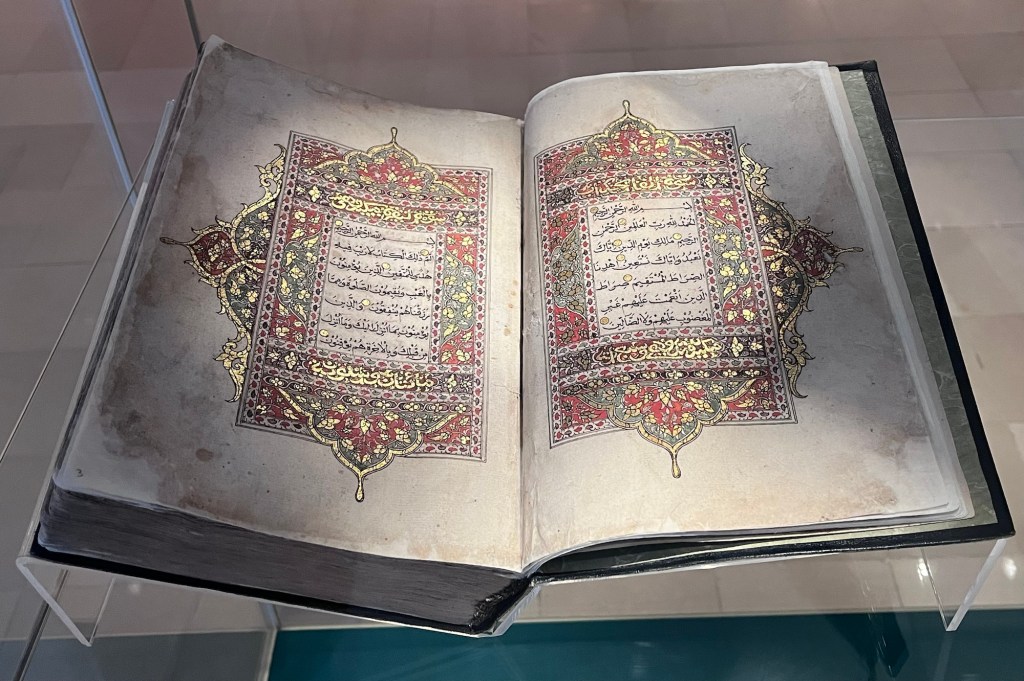 بسم الله الرحمن الرحيم
الحمد لله رب العالمين الرحمن
الرحيم مالك يوم الدين إياك
نعبد وإياك نستعين اهدنا
الصراط المستقيم صراط
الذين أنعمت عليهم غير
المغضوب عليهم ولا الضالين
سورة البقرة
بسم الله الرحمن الرحيم
الم ذلك الكتاب لا ريب فيه
هدى للمتقين الذين يؤمنون
بالغيب ويقيمون الصلوة ومما
رزقناهم ينفقون والذين
يؤمنون بما أنزل إليك وما أنزل
من قبلك وبالآخرة هم يوقنون
3